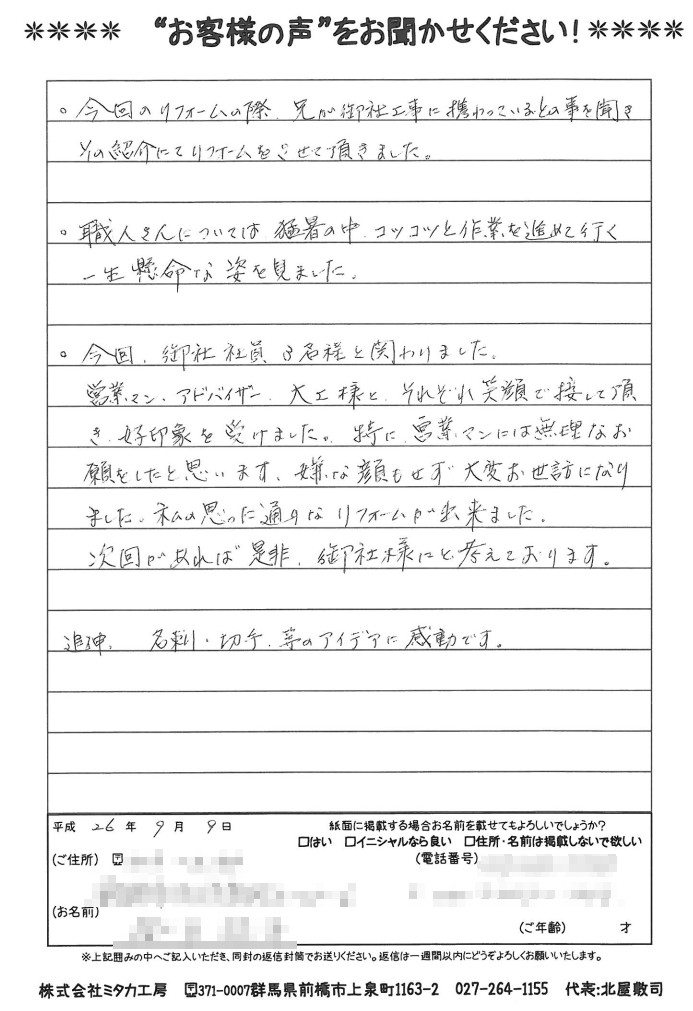 ****　“お客様の声”をお聞かせください！****
。今回のリフォームの際、兄が御社工事に携わっているとの事を聞き
その紹介にてリフォームをさせて頂きました。
。職人さんについては猛暑の中、コツコツと作業を進めて行く
一生懸命な姿を見ました。
。今回、御社社員3名様と関わりました。
営業マン、アドバイザー、大工様と、それぞれ笑顔で接して頂
き、好印象を受けました。特に、営業マンには無理なお
願をしたと思います、嫌な顔もせず大変お世話になり
ました。私の思った通りなリフォームが出来ました。
次回があれば是非、御社様にと考えております。
追神、　名刺・切手、等のアイデアに感動です。
平成 26 年 9 月 9 日
紙面に掲載する場合お名前を載せてもよろしいでしょうか?
□はい　□イニシャルなら良い　□住所・名前は掲載しないで欲しい
(ご住所)
(電話番号)
(お名前)
(ご年齢)　　　才
※上記囲みの中へご記入いただき、同封の返信封筒でお送りください。返信は一週間以内にどうぞよろしくお願いいたします。
株式会社ミタカ工房　〒371-0007群馬県前橋市上泉町1163-2　027-264-1155　代表:北屋敷司